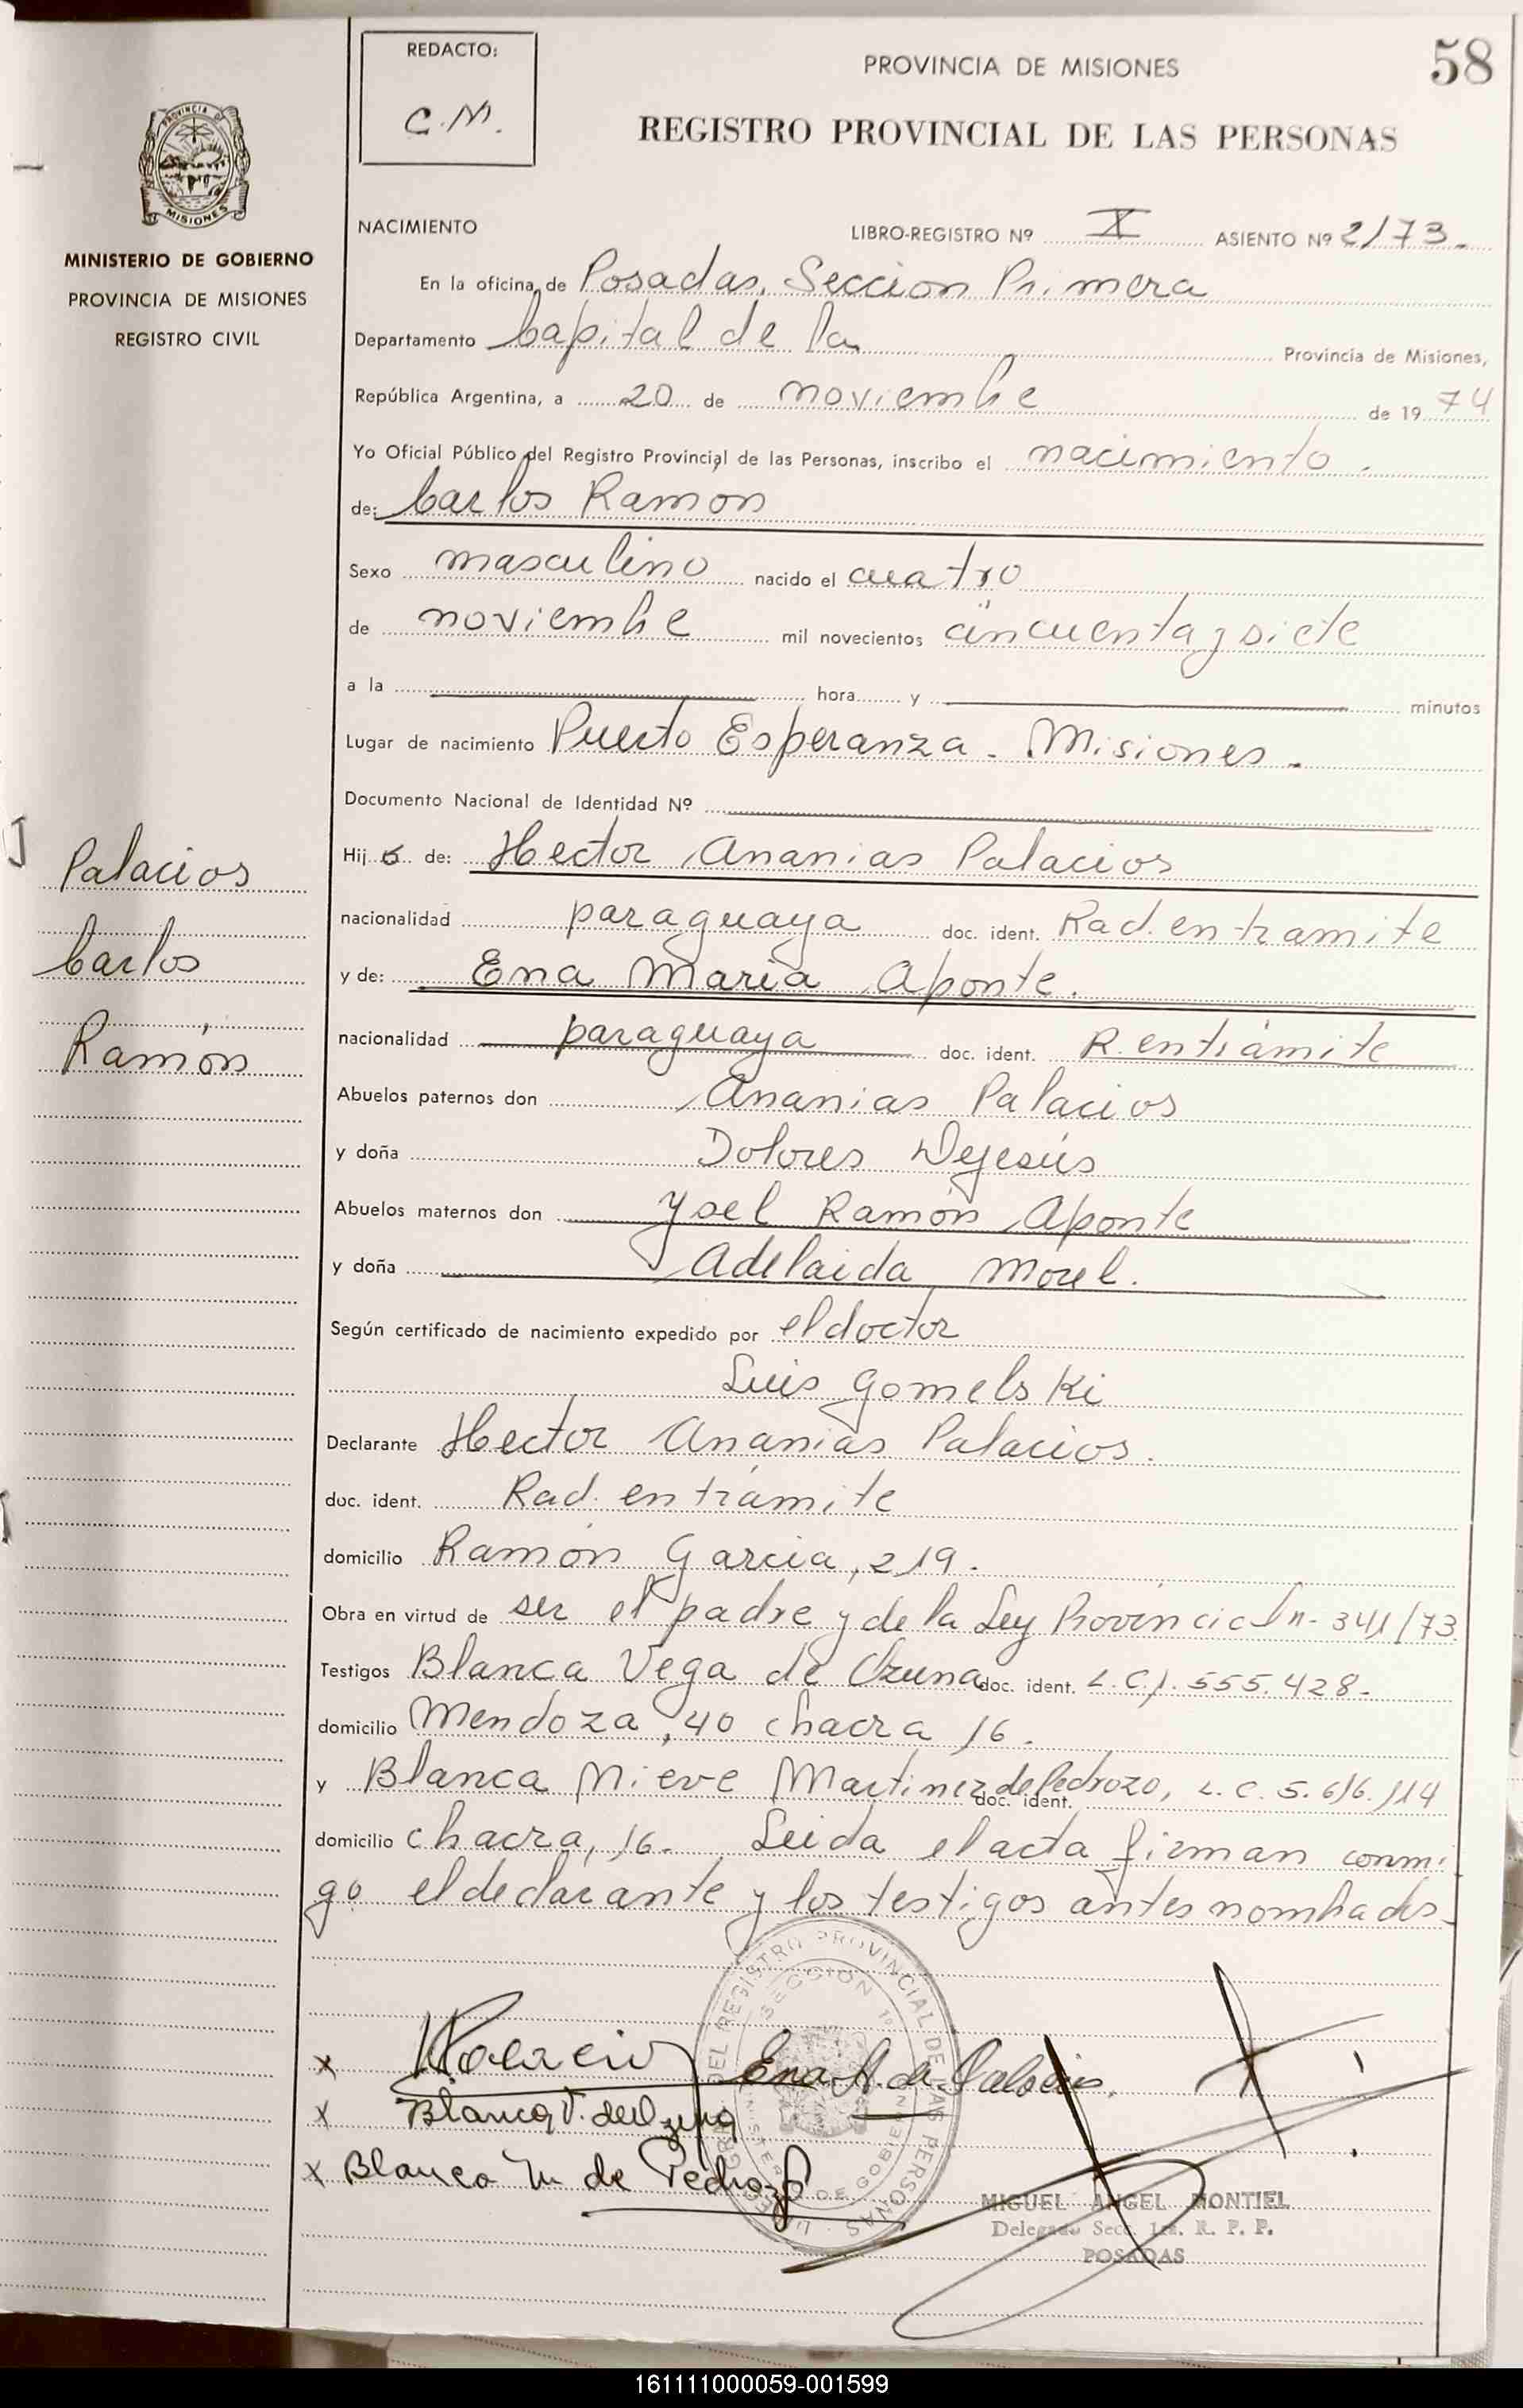 58
REDACTO:
C.M.
PROVINCIA DE MISIONES
REGISTRO PROVINCIAL DE LAS PERSONAS
PROVINCIA DE
MISIONES
MINISTERIO DE GOBIERNO
PROVINCIA DE MISIONES
REGISTRO CIVIL
NACIMIENTO LIBRO-REGISTRO Nº X ASIENTO Nº 2173.
En la oficina de Posadas, Seccion Primera
Departamento Capital de la Provincia de Misiones,
República Argentina, a 20 de noviembre de 19 74
Yo Oficial Público del Registro Provincial de las Personas, inscribo el nacimiento.
de: Carlos Ramon
Sexo masculino nacido el cuatro
de noviembre mil novecientos cincuenta y siete
a la hora y minutos
Lugar de nacimiento Puerto Esperanza. Misiones.
Documento Nacional de Identidad Nº
Palacios
Carlos
Ramón
Hij o de: Hector Ananias Palacios
nacionalidad paraguaya doc. ident. Rad. en tramite
y de: Ena Maria Aponte.
nacionalidad paraguaya doc. ident. R. en trámite
Abuelos paternos don Ananias Palacios
y doña Dolores Dejesús
Abuelos maternos don Ysel Ramón Aponte
y doña Adelaida Morel.
Según certificado de nacimiento expedido por el doctor
Luis Gomelski
Declarante Hector Ananias Palacios.
doc. ident. Rad. en trámite
domicilio Ramón Garcia, 219.
Obra en virtud de ser el padre y de la Ley Provincial n- 341/73.
Testigos Blanca Vega de Ozuna doc. ident. L.C. 1.555.428-
domicilio Mendoza, 40 chacra 16.
y Blanca Nieve Martinez de Pedrozo, doc. ident. L.C. 5.616.114
domicilio chacra, 16. Leida el acta firman conmi
go el declarante y los testigos antes nombrados-
x Palacios Ena A. de Palacios.
x Blanca V. de Ozuna
x Blanca M de Pedrozo
DEL REGISTRO PROVINCIAL DE LAS PERSONAS
SECCION 1ª
MINISTERIO DE GOBIERNO
MIGUEL ANGEL MONTIEL
Delegado Secc. 1ra. R. P. P.
POSADAS
161111000059-001599